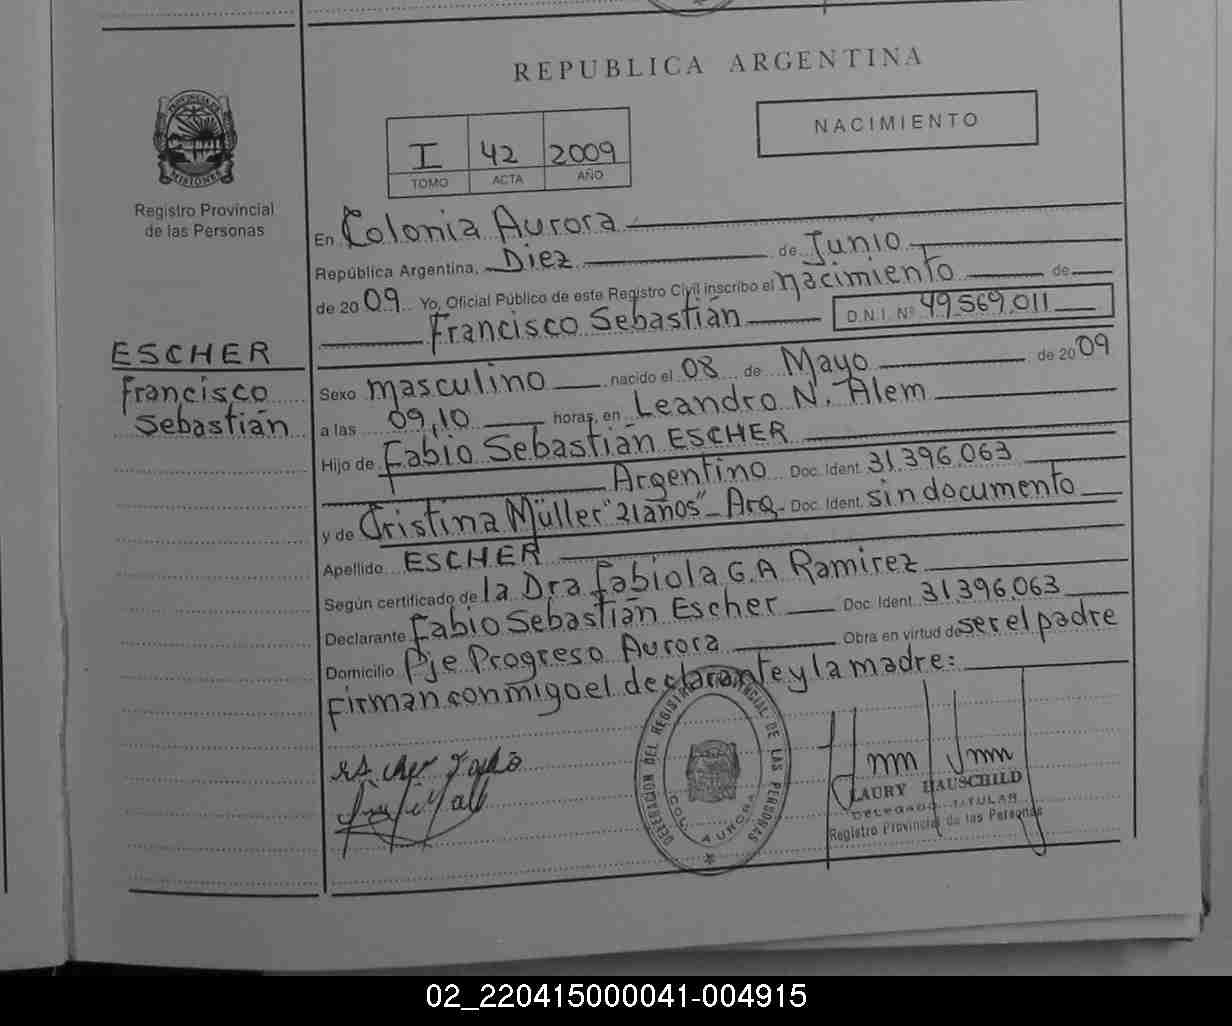 REPUBLICA ARGENTINA
NACIMIENTO
I 42 2009
TOMO ACTA AÑO
PROVINCIA DE
MISIONES
Registro Provincial
de las Personas
En Colonia Aurora
República Argentina, Diez de Junio
de 2009 Yo, Oficial Público de este Registro Civil inscribo el nacimiento de
Francisco Sebastián D.N.I. Nº 49.569.011
ESCHER
Francisco
Sebastián
Sexo masculino nacido el 08 de Mayo de 2009
a las 09,10 horas, en Leandro N. Alem
Hijo de Fabio Sebastián ESCHER
Argentino Doc. Ident. 31.396.063
y de Cristina Müller "21años"- Arg- Doc. Ident. sin documento
Apellido ESCHER
Según certificado de la Dra Fabiola G.A Ramirez
Declarante Fabio Sebastián Escher Doc. Ident. 31.396.063
Domicilio Pje Progreso Aurora Obra en virtud de ser el padre
firman conmigo el declarante y la madre:
DELEGACION DEL REGISTRO PROVINCIAL DE LAS PERSONAS
COL. AURORA
LAURY HAUSCHILD
DELEGADO TITULAR
Registro Provincial de las Personas
02_220415000041-004915